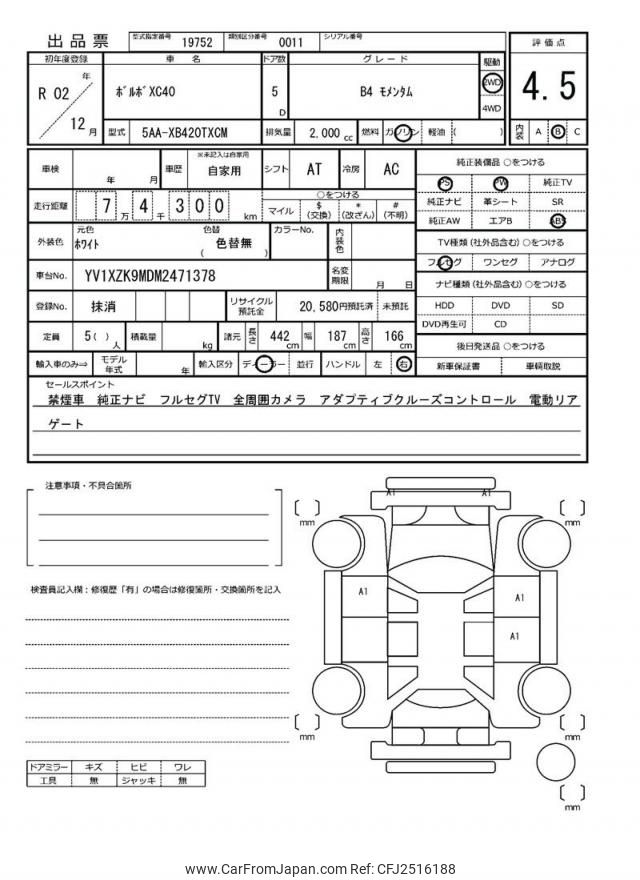 出品票 型式指定番号 19752 類別区分番号 0011 シリアル番号
初年度登録 車 名 ドア数 グレード 駆動 評価点
R 02 年 12 月 ﾎﾞﾙﾎﾞXC40 5 D B4 ﾓﾒﾝﾀﾑ 2WD 4WD 4.5
型式 5AA-XB420TXCM 排気量 2,000 cc 燃料 ガソリン 軽油 ( ) 内装 A B C
車検 年 月 車歴 ※未記入は自家用 自家用 シフト AT 冷房 AC
走行距離 7 万 4 千 3 0 0 km ○をつける
マイル $ (交換) * (改ざん) # (不明)
外装色 元色 ﾎﾜｲﾄ 色替 ( 色替無 ) カラーNo. 内装色
車台No. YV1XZK9MDM2471378 名変期限 月 日
登録No. 抹消 リサイクル預託金 20,580円預託済 未預託
定員 5( ) 人 積載量 kg 諸元 長さ 442 cm 幅 187 cm 高さ 166 cm
輸入車のみ⇒ モデル年式 年 輸入区分 ディーラー 並行 ハンドル 左 右
純正装備品 ○をつける
PS PW 純正TV
純正ナビ 革シート SR
純正AW エアB ABS
TV種類(社外品含む)○をつける
フルセグ ワンセグ アナログ
ナビ種類(社外品含む)○をつける
HDD DVD SD
DVD再生可 CD
後日発送品 ○をつける
新車保証書 車輌取説
セールスポイント
禁煙車 純正ナビ フルセグTV 全周囲カメラ アダプティブクルーズコントロール 電動リア
ゲート
注意事項・不具合箇所
検査員記入欄：修復歴「有」の場合は修復箇所・交換箇所を記入
ドアミラー キズ ヒビ ワレ
工具 無 ジャッキ 無
A1 A1
mm mm
A1 A1
A1
mm mm
mm
www.CarFromJapan.com Ref: CFJ2516188